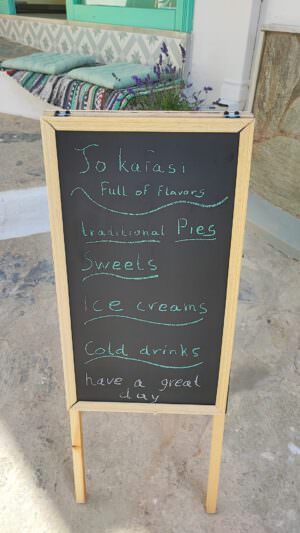 To kaϊasi
Full of Flavors
traditional Pies
Sweets
Ice creams
Cold drinks
have a great
day